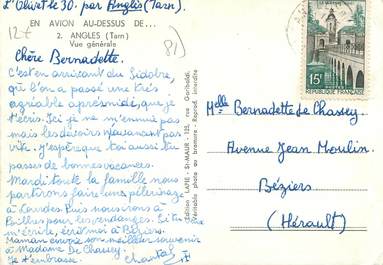 L'Olivet le 30. par Anglès (Tarn).
EN AVION AU-DESSUS DE...
12€
2. ANGLES (Tarn)
Vue générale
81
Chère Bernadette.
C'est en arrivant du Sidobre,
qu'l'on a passé une très
agréable après midi, que je
t'écris. Ici je ne m'ennuie pas
mais les devoirs n'avancent pas
vite. J'espère que toi aussi tu
passes de bonnes vacances.
Mardi toute la famille nous
partirons faire un pèlerinage
à Lourdes Puis nous irons à
pour les vendanges. Si tu
m'écris, écris moi à Béziers.
Maman envoie son meilleur souvenir
à Madame De Chassey.
Je t'embrasse.
Chantal
Edition "LAPIE" - St-MAUR - 125, rue Garibaldi
Véritable photo au bromure - Reprod. interdite
LE QUESNOY
15F
REPUBLIQUE FRANÇAISE
Melle Bernadette de Chassey.
Avenue Jean Moulin.
Béziers
(Hérault)